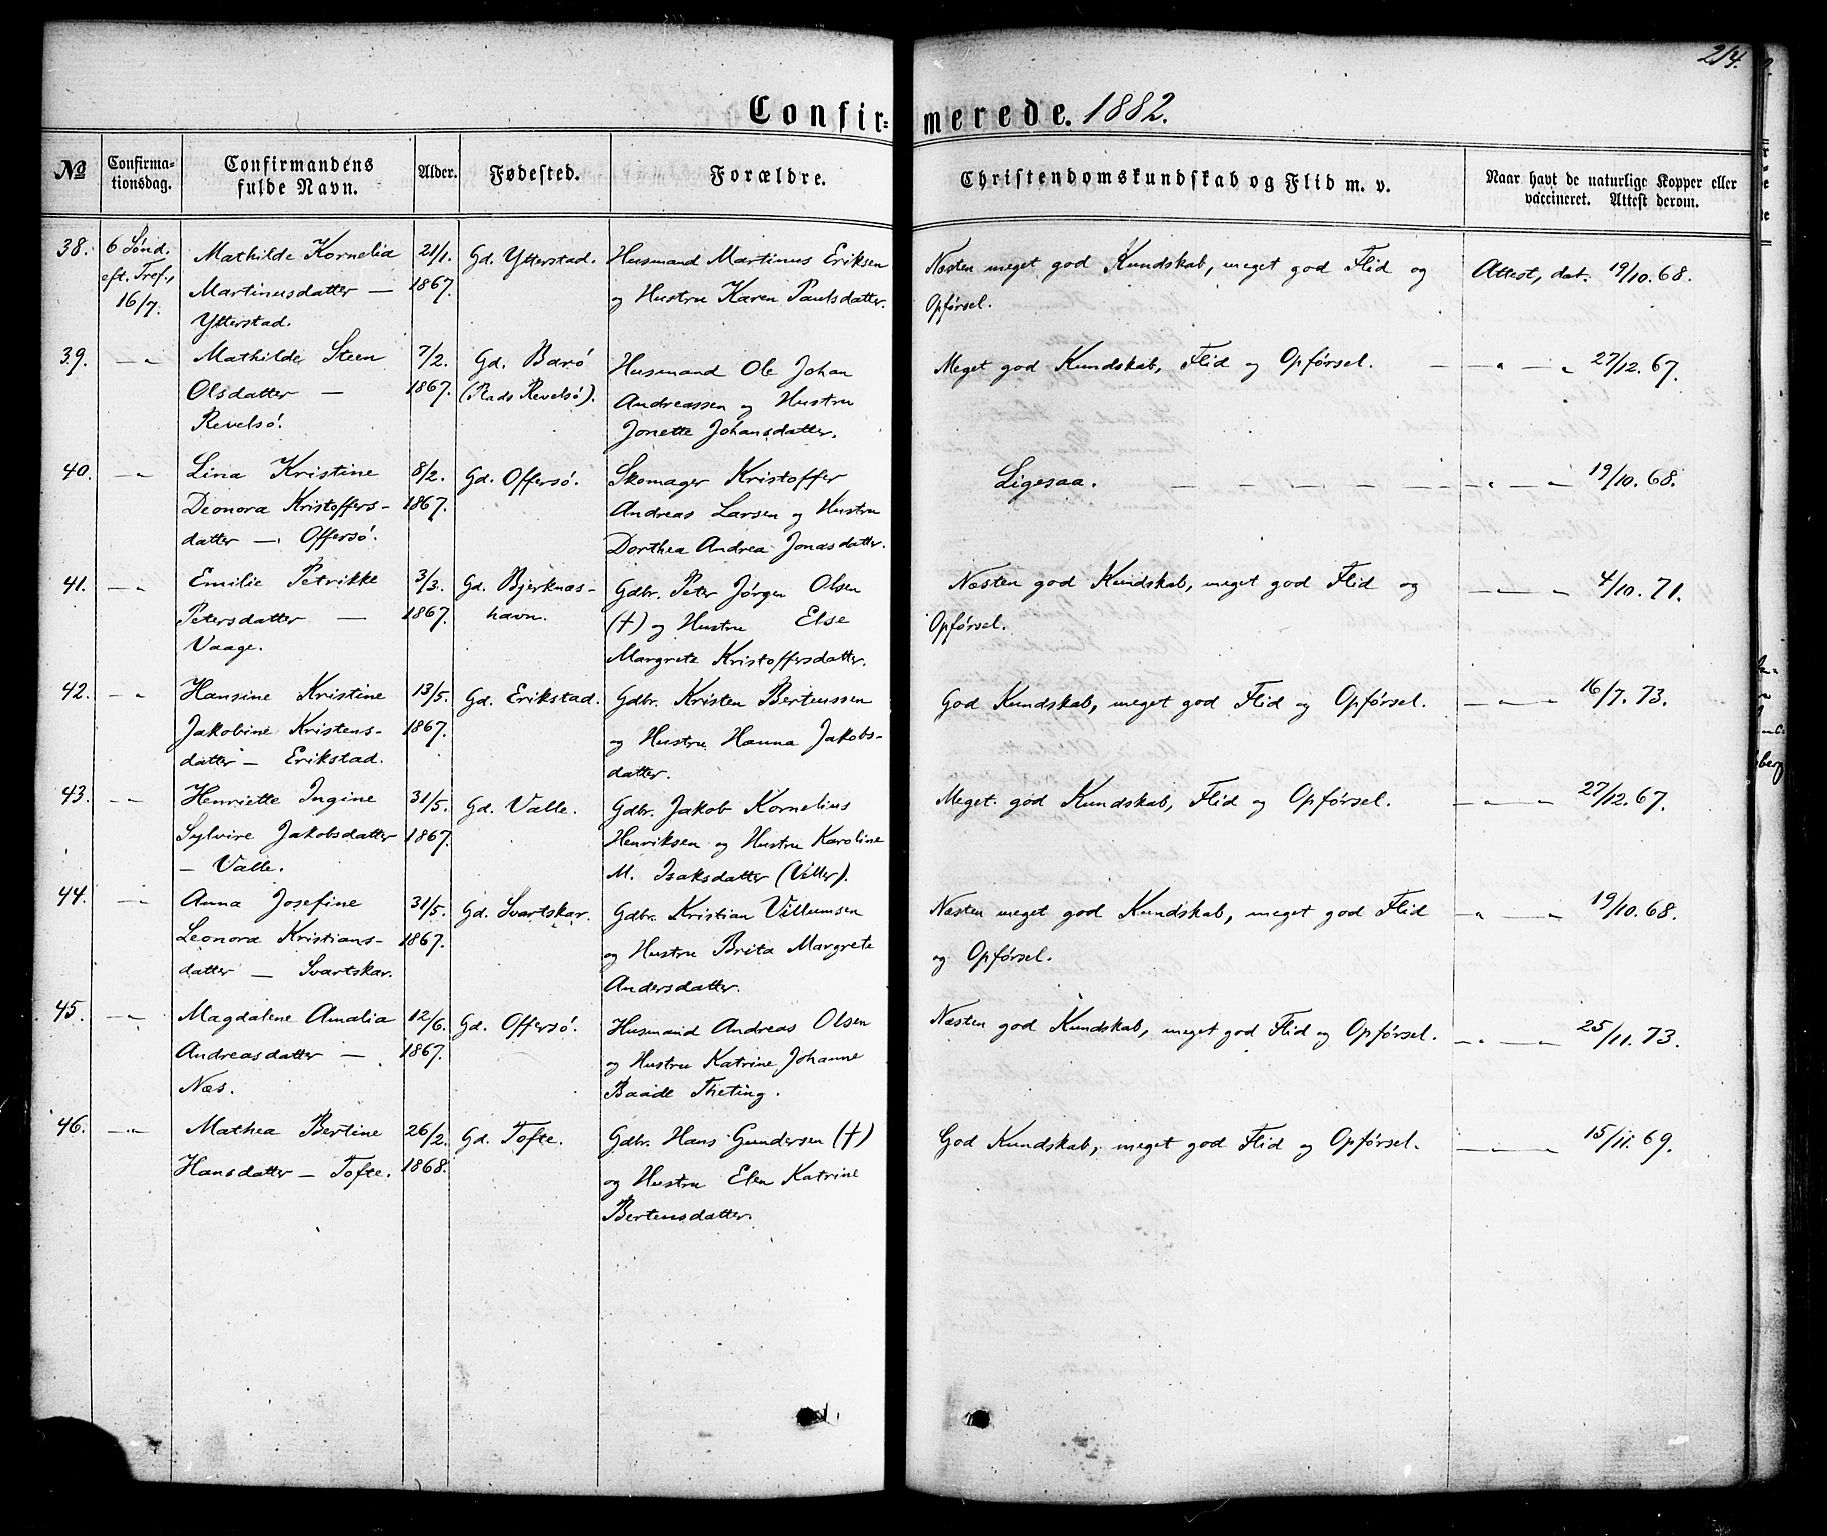 214.
Confirmerede. 1882.
№ Confirmationsdag. Confirmandens fulde Navn. Alder. Fødested. Forældre. Christendomskundskab og Flid m. v. Naar havt de naturlige Kopper eller vaccineret. Attest derom.
38. 6 Sønd. Mathilde Kornelia 21/1. Gd. Ytterstad. Husmand Martinus Eriksen Næsten meget god Kundskab, meget god Flid og Attest, dat. 19/10. 68.
eft. Tref. Martinusdatter — 1867. og Hustru Karen Paulsdatter. Opførsel.
16/7. Ytterstad.
39. — „ Mathilde Steen 7/2. Gd. Barø Husmand Ole Johan Meget god Kundskab, Flid og Opførsel. — — „ — „ 27/12. 67.
Olsdatter — 1867. (Plads Revelsø). Andreassen og Hustru
Revelsø. Jonette Johansdatter.
40. — „ Lina Kristine 8/2. Gd. Offersø. Skomager Kristoffer Ligesaa. — — — — — — „ — „ — 19/10. 68.
Deonora Kristoffers- 1867. Andreas Larsen og Hustru
datter — Offersø. Dorthea Andrea Jonasdatter.
41. — „ Emilie Petrikke 3/3. Gd. Bjerknes- Gdbr. Peter Jørgen Olsen Næsten god Kundskab, meget god Flid og — „ — „ — 4/10. 71.
Petersdatter — 1867. havn. (†) og Hustru Else Opførsel.
Vaage. Margrete Kristoffersdatter.
42. — „ Hansine Kristine 13/5. Gd. Erikstad. Gdbr. Kristen Bertenssen God Kundskab, meget god Flid og Opførsel. — „ — „ — 16/7. 73.
Jakobine Kristens- 1867. og Hustru Hanna Jakobs-
datter — Erikstad. datter.
43. — „ Henriette Ingine 31/5. Gd. Valle. Gdbr. Jakob Kornelius Meget god Kundskab, Flid og Opførsel. — „ — „ — 27/12. 67.
Sylvire Jakobsdatter 1867. Henriksen og Hustru Karoline
— Valle. M. Isaksdatter (Viller).
44. — „ Anna Josefine 31/5. Gd. Svartskar. Gdbr. Kristian Villumsen Næsten meget god Kundskab, meget god Flid — „ — „ — 19/10. 68.
Leonora Kristians- 1867. og Hustru Brita Margrete og Opførsel.
datter — Svartskar. Andersdatter.
45. — „ Magdalene Amalia 12/6. Gd. Offersø. Husmand Andreas Olsen Næsten god Kundskab, meget god Flid og Opførsel. — „ — „ — 25/11. 73.
Andreasdatter — 1867. og Hustru Katrine Johanne
Næs. Baade Theting.
46. — „ — Mathea Bertine 26/2. Gd. Tofte. Gdbr. Hans Gundersen (†) God Kundskab, meget god Flid og Opførsel. — „ — „ — 15/11. 69.
Hansdatter — Tofte. 1868. og Hustru Elen Katrine
Bertensdatter.